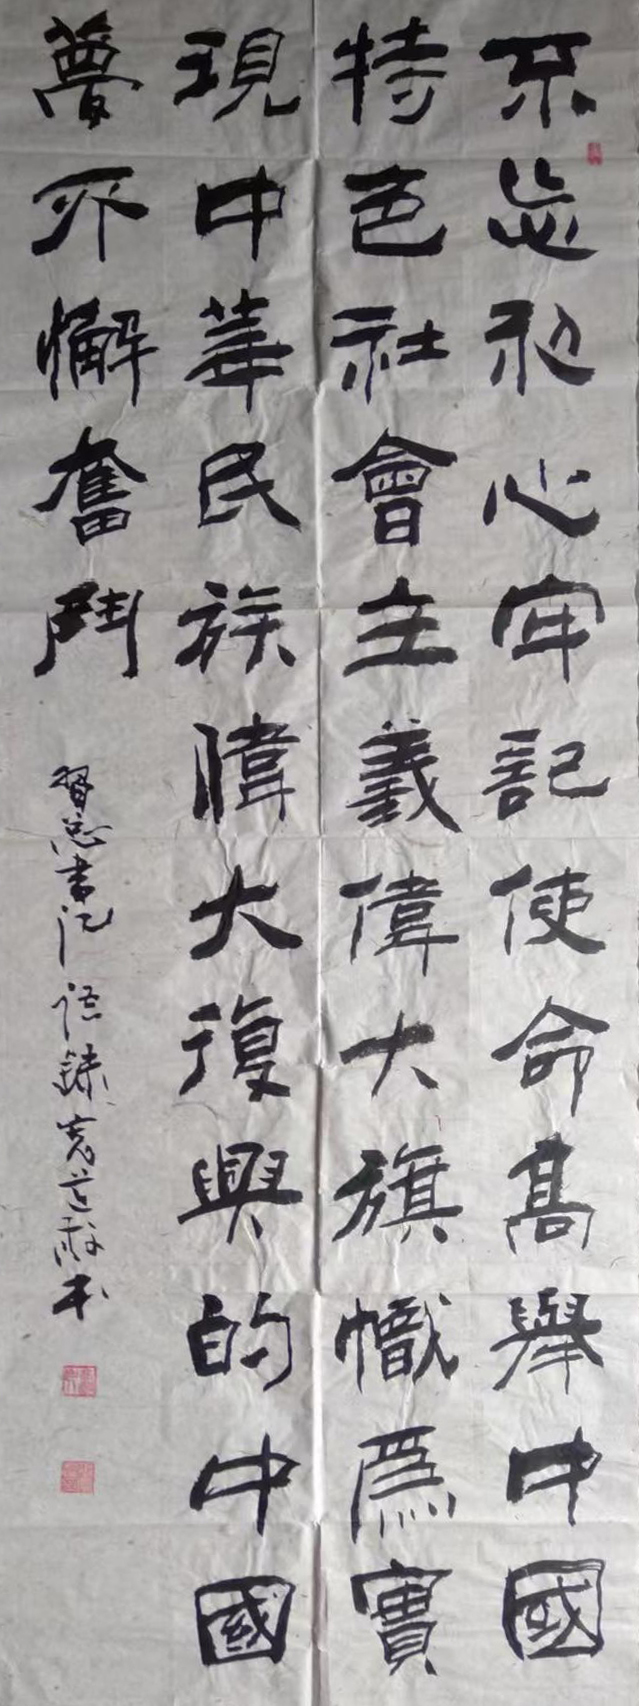 不忘初心牢記使命高舉中國
特色社會主義偉大旗幟為實
現中華民族偉大復興的中國
夢不懈奮鬥
習總書記語錄